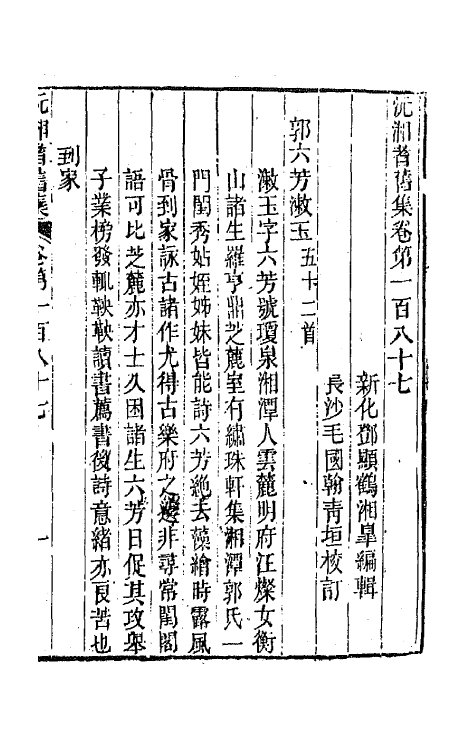 沅湘耆舊集卷第一百八十七
新化鄧顯鶴湘臯編輯
長沙毛國翰靑垣校訂
郭六芳漱玉五十二首
漱玉字六芳號瓊泉湘潭人雲麓明府汪燦女衡
山諸生羅亨鼎芝麓室有繡珠軒集湘潭郭氏一
門閨秀姑姪姊妹皆能詩六芳絶去藻繪時露風
骨到家詠古諸作尤得古樂府之遺非尋常閨閤
語可比芝麓亦才士久困諸生六芳日促其攻舉
子業榜發輒鞅鞅讀書薦書後詩意緒亦良苦也
到家
沅湘耆舊集 卷第一百八十七 一